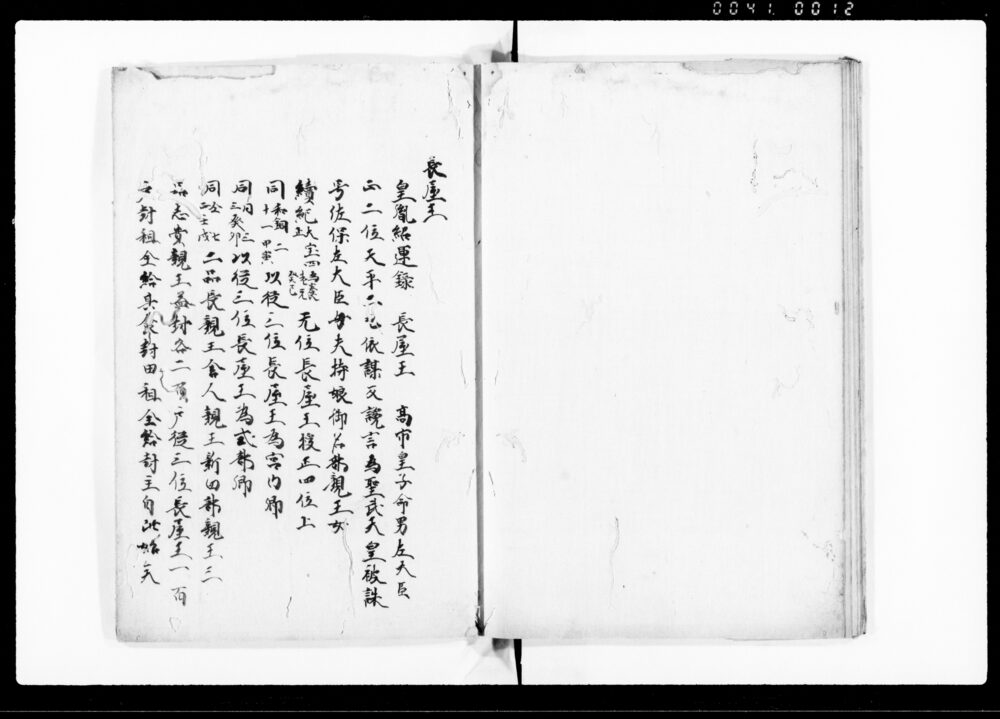 0041.0012
長屋王
皇胤紹運録 長屋王 高市皇子命男左大臣
正二位天平六 依謀反讒言為聖武天皇被誅
号佐保左大臣母夫持娘御名部親王女
續紀 大宝四 癸巳 无位長屋王授正四位上
同 和銅二 十一甲寅 以従三位長屋王為宮内卿
同 同三 三癸卯 以従三位長屋王為式部卿
同 二壬戌 二品長親王舎人親王新田部親王三
品志貴親王益封各二百戸従三位長屋王一百
戸封租全給其食封田租全給封主自此始矣